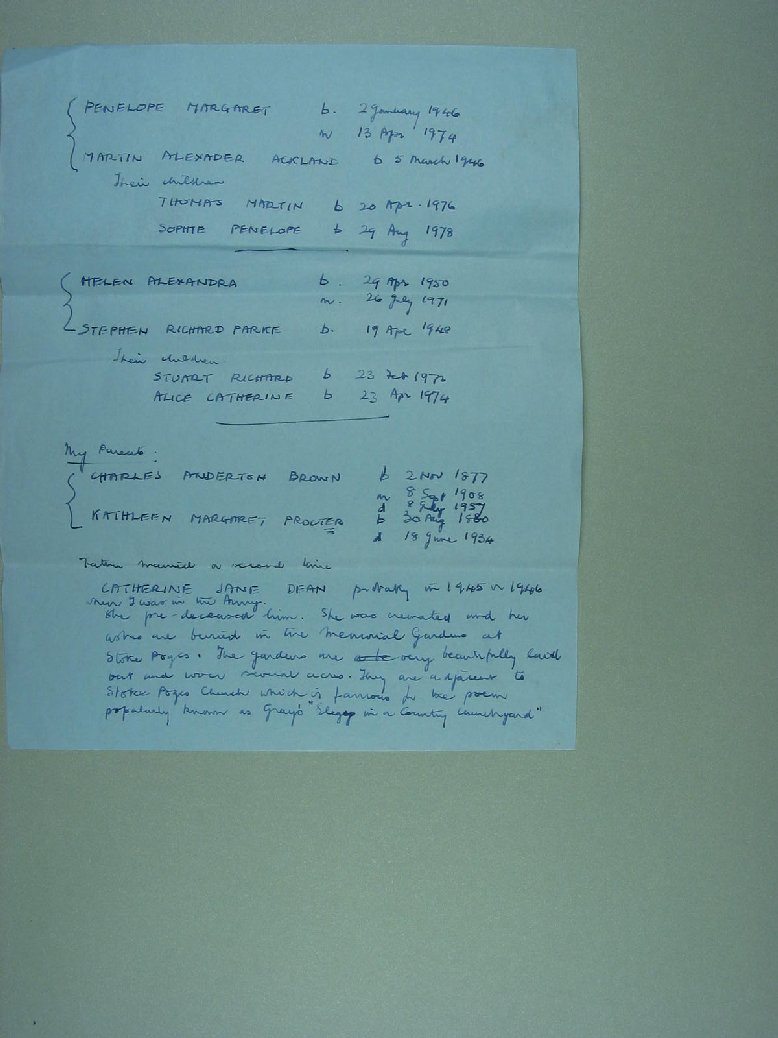 PENELOPE MARGARET b. 2 January 1946
m 13 Apr 1974
MARTIN ALEXADER ACKLAND b 5 March 1946
Their children
THOMAS MARTIN b 20 Apr. 1976
SOPHIE PENELOPE b 29 Aug 1978
HELEN ALEXANDRA b. 29 Apr 1950
m. 26 July 1971
STEPHEN RICHARD PARKE b. 19 Apr 1948
Their children
STUART RICHARD b 23 Feb 1972
ALICE CATHERINE b 23 Apr 1974
My Parents:
CHARLES ANDERTON BROWN b 2 NOV 1877
m 8 Sept 1908
d 8 July 1957
KATHLEEN MARGARET PROCTER b 30 Aug 1880
d 18 June 1934
Father married a second time
CATHERINE JANE DEAN probably in 1945 or 1946
when I was in the Army.
She pre-deceased him. She was cremated and her
ashes are buried in the Memorial Gardens at
Stoke Poges. The gardens are very beautifully laid
out and cover several acres. They are adjacent to
Stoke Poges Church which is famous for the poem
popularly known as Gray's "Elegy in a Country Churchyard"